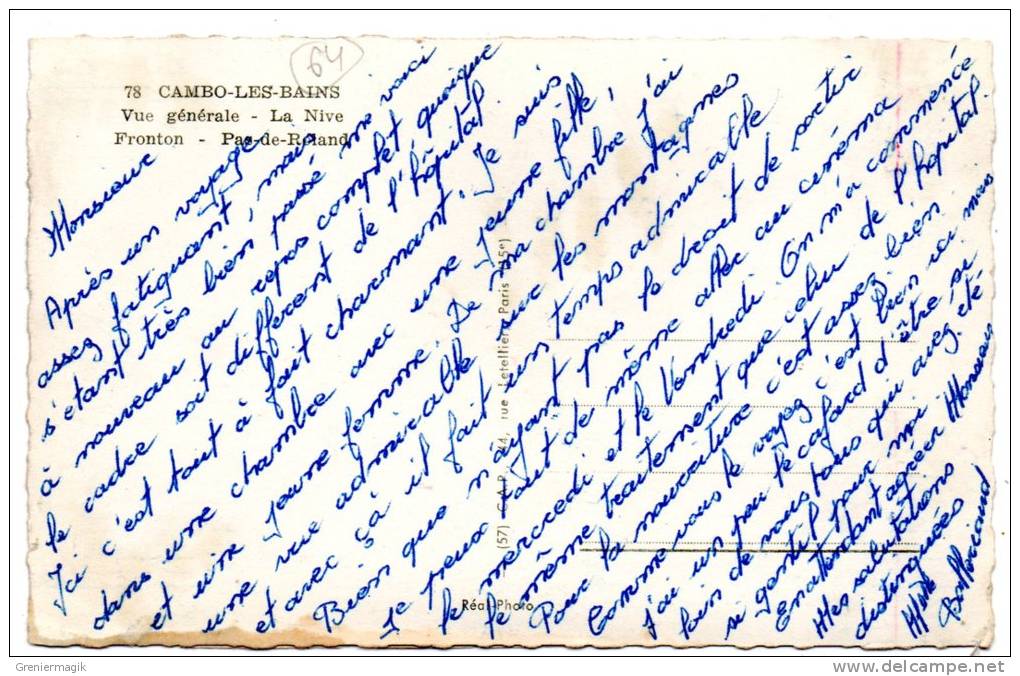 64
78 CAMBO-LES-BAINS
Vue générale - La Nive
Fronton - Pas-de-Roland
Monsieur
Après un voyage
assez fatiguant, mais
s'étant très bien passé me voici
à nouveau au repos complet quoique
le cadre soit différent de l'hôpital.
Ici c'est tout à fait charmant. Je suis
dans une chambre avec une jeune fille,
et une jeune femme. De ma chambre j'ai
une vue admirable sur les montagnes
et avec çà il fait un temps admirable
Bien que n'ayant pas le droit de sortir
je peux tout de même aller au cinéma
le mercredi et le Vendredi. On m'a commencé
le même traitement que celui de l'hôpital.
Pour la nourriture c'est assez bien
Comme vous le voyez c'est bien ici mais
j'ai un peu le cafard d'être si
loin de vous tous qui avez été
si gentil pour moi.
En attendant agréer Monsieur
Mes salutations
distinguées
(57) C.A.P. 44, rue Letellier, Paris (15e)
Réal-Photo
Greniermagik
www.delcampe.net